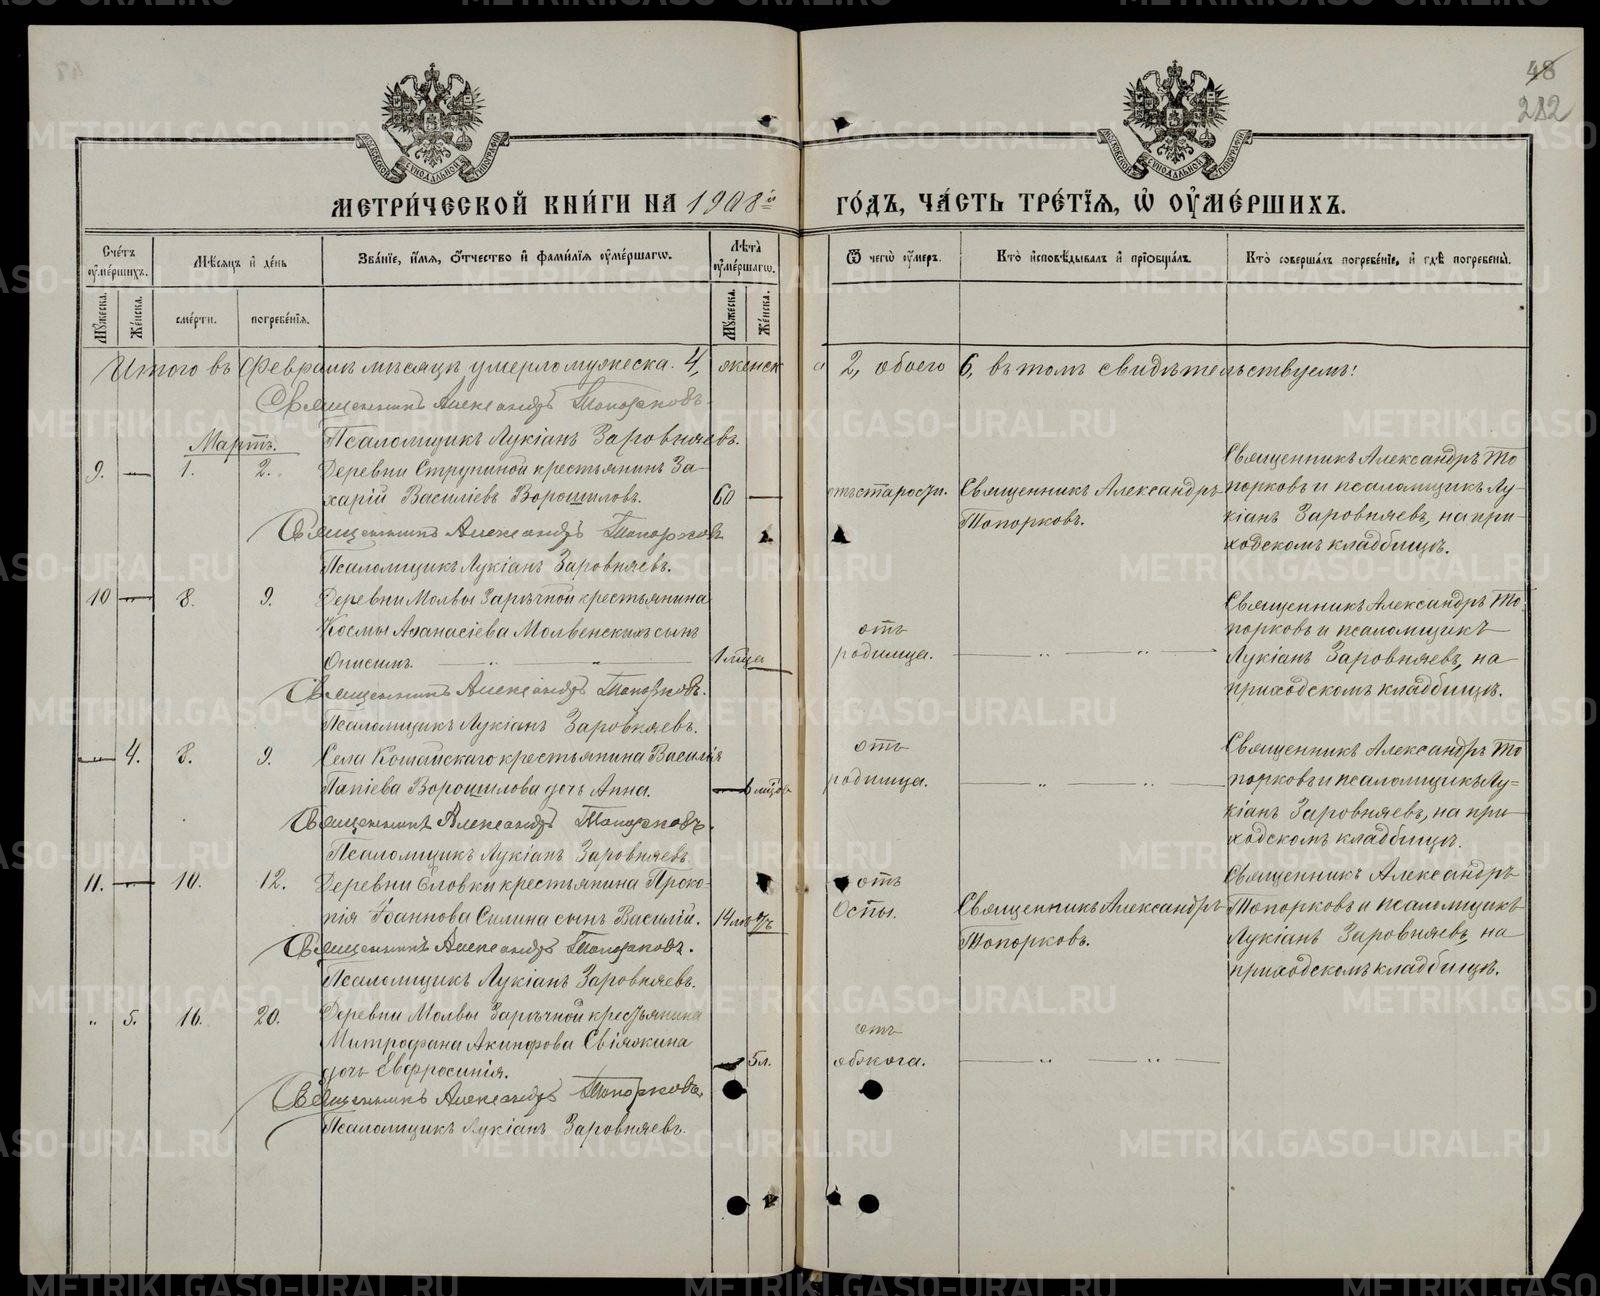 48
282
МОСКОВСКОЙ СѴНОДАЛЬНОЙ ТИПОГРАФІИ
МОСКОВСКОЙ СѴНОДАЛЬНОЙ ТИПОГРАФІИ
МЕТРИ́ЧЕСКОЙ КНИ́ГИ НА 1908й ГО́ДЪ, ЧА́СТЬ ТРЕ́ТЇѦ, Ѡ҆ ОУ҆МЕ́РШИХЪ.
Сче́тъ оу҆ме́ршихъ.
Мѣ́сяцъ и҆ де́нь
Зва́нїе, и҆́мѧ, ѻ҆́тчество и҆ фами́лїѧ оу҆ме́ршагѡ.
Лѣ́та оу҆ме́ршагѡ.
Ѿ чегѡ̀ оу҆́меръ.
Кто̀ и҆сповѣ́дывалъ и҆ прїѡбща́лъ.
Кто̀ соверша́лъ погребе́нїе, и҆ гдѣ̀ погребены̀.
Мꙋ́жеска.
Же́нска.
сме́рти.
погребе́нїѧ.
Мꙋ́жеска.
Же́нска.
Итого въ Февралѣ мѣсяцѣ умерло мужеска 4, женска 2, обоего 6, въ томъ свидѣтельствуемъ:
Священникъ Александръ Топорковъ.
Псаломщикъ Лукіанъ Заровняевъ.
Мартъ.
9. — 1. 2. Деревни Струпиной крестьянинъ За-
харій Василіевъ Ворошиловъ. 60 —
отъ старости.
Священникъ Александръ
Топорковъ.
Священникъ Александръ То
порковъ и псаломщикъ Лу-
кіанъ Заровняевъ, на при-
ходскомъ кладбищѣ.
Священникъ Александръ Топорковъ
Псаломщикъ Лукіанъ Заровняевъ.
10 — 8. 9. Деревни Молвы Зарѣчной крестьянина
Космы Аѳанасіева Молвенскихъ сынъ
Онисимъ. — „ — „ — 1 мѣсца
отъ
родимца. — „ — „ —
Священникъ Александръ То
порковъ и псаломщикъ
Лукіанъ Заровняевъ, на
приходскомъ кладбищѣ.
Священникъ Александръ Топорковъ.
Псаломщикъ Лукіанъ Заровняевъ.
— 4. 8. 9. Села Кошайскаго крестьянина Василія
Папіева Ворошилова дочь Анна.
отъ
родимца. — „ — „ —
Священникъ Александръ То
порковъ и псаломщикъ Лу-
кіанъ Заровняевъ, на при
ходскомъ кладбищѣ.
Священникъ Александръ Топорковъ.
Псаломщикъ Лукіанъ Заровняевъ.
11. — 10. 12. Деревни Еловки крестьянина Проко-
пія Іоаннова Силина сынъ Василій. 14
отъ
Оспы.
Священникъ Александръ
Топорковъ.
Священникъ Александръ
Топорковъ и псаломщикъ
Лукіанъ Заровняевъ, на
приходскомъ кладбищѣ.
Священникъ Александръ Топорковъ.
Псаломщикъ Лукіанъ Заровняевъ.
„ 5. 16. 20. Деревни Молвы Зарѣчной крестьянина
Митрофана Акинфова Свіяжина
дочь Евфросинія. — 5л.
отъ
обжога. — „ — „ —
Священникъ Александръ Топорковъ.
Псаломщикъ Лукіанъ Заровняевъ.
METRIKI.GASO-URAL.RU